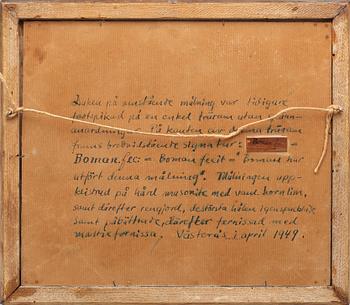 Duken på omstående målning var tidigare
fastspikad på en enkel träram utan spänn-
anordningar. På kanten av denna träram
fanns bredvidstående signatur: =
Boman.fec: = Boman fecit = "Boman har
utfört denna målning". Målningen upp-
klistrad på hård masonite med varmt hornlim,
samt därefter rengjord, de största hålen igenspacklade
samt påbättrade, därefter fernissad med
mastixfernissa. Västerås i april 1949.